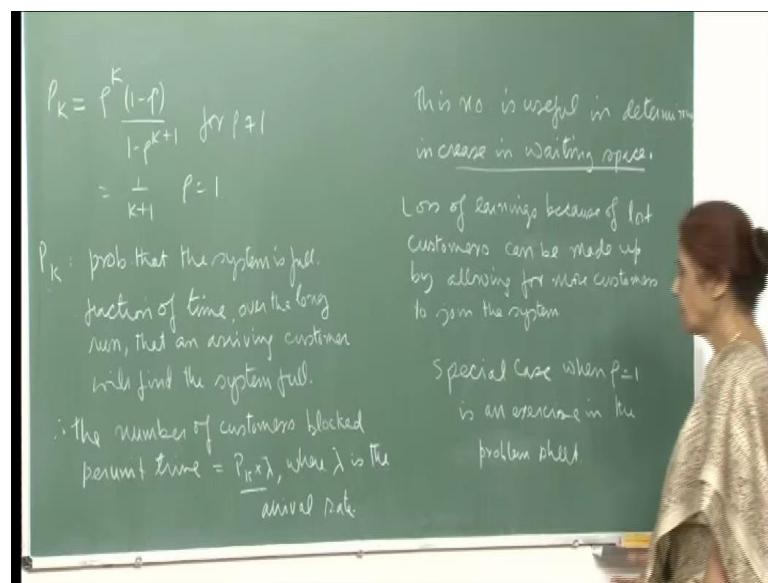 P_K = ρ^K (1-ρ) / 1-ρ^{K+1} for ρ≠1
= 1/K+1 ρ=1
P_K : prob. that the system is full.
fraction of time, over the long
run, that an arriving customer
will find the system full.
∴ the number of customers blocked
per unit time = P_K × λ, where λ is the
arrival rate.
This no. is useful in determin
increase in waiting space.
Loss of earnings because of lost
customers can be made up
by allowing for more customers
to join the system
Special Case when ρ=1
is an exercise in the
problem sheet.